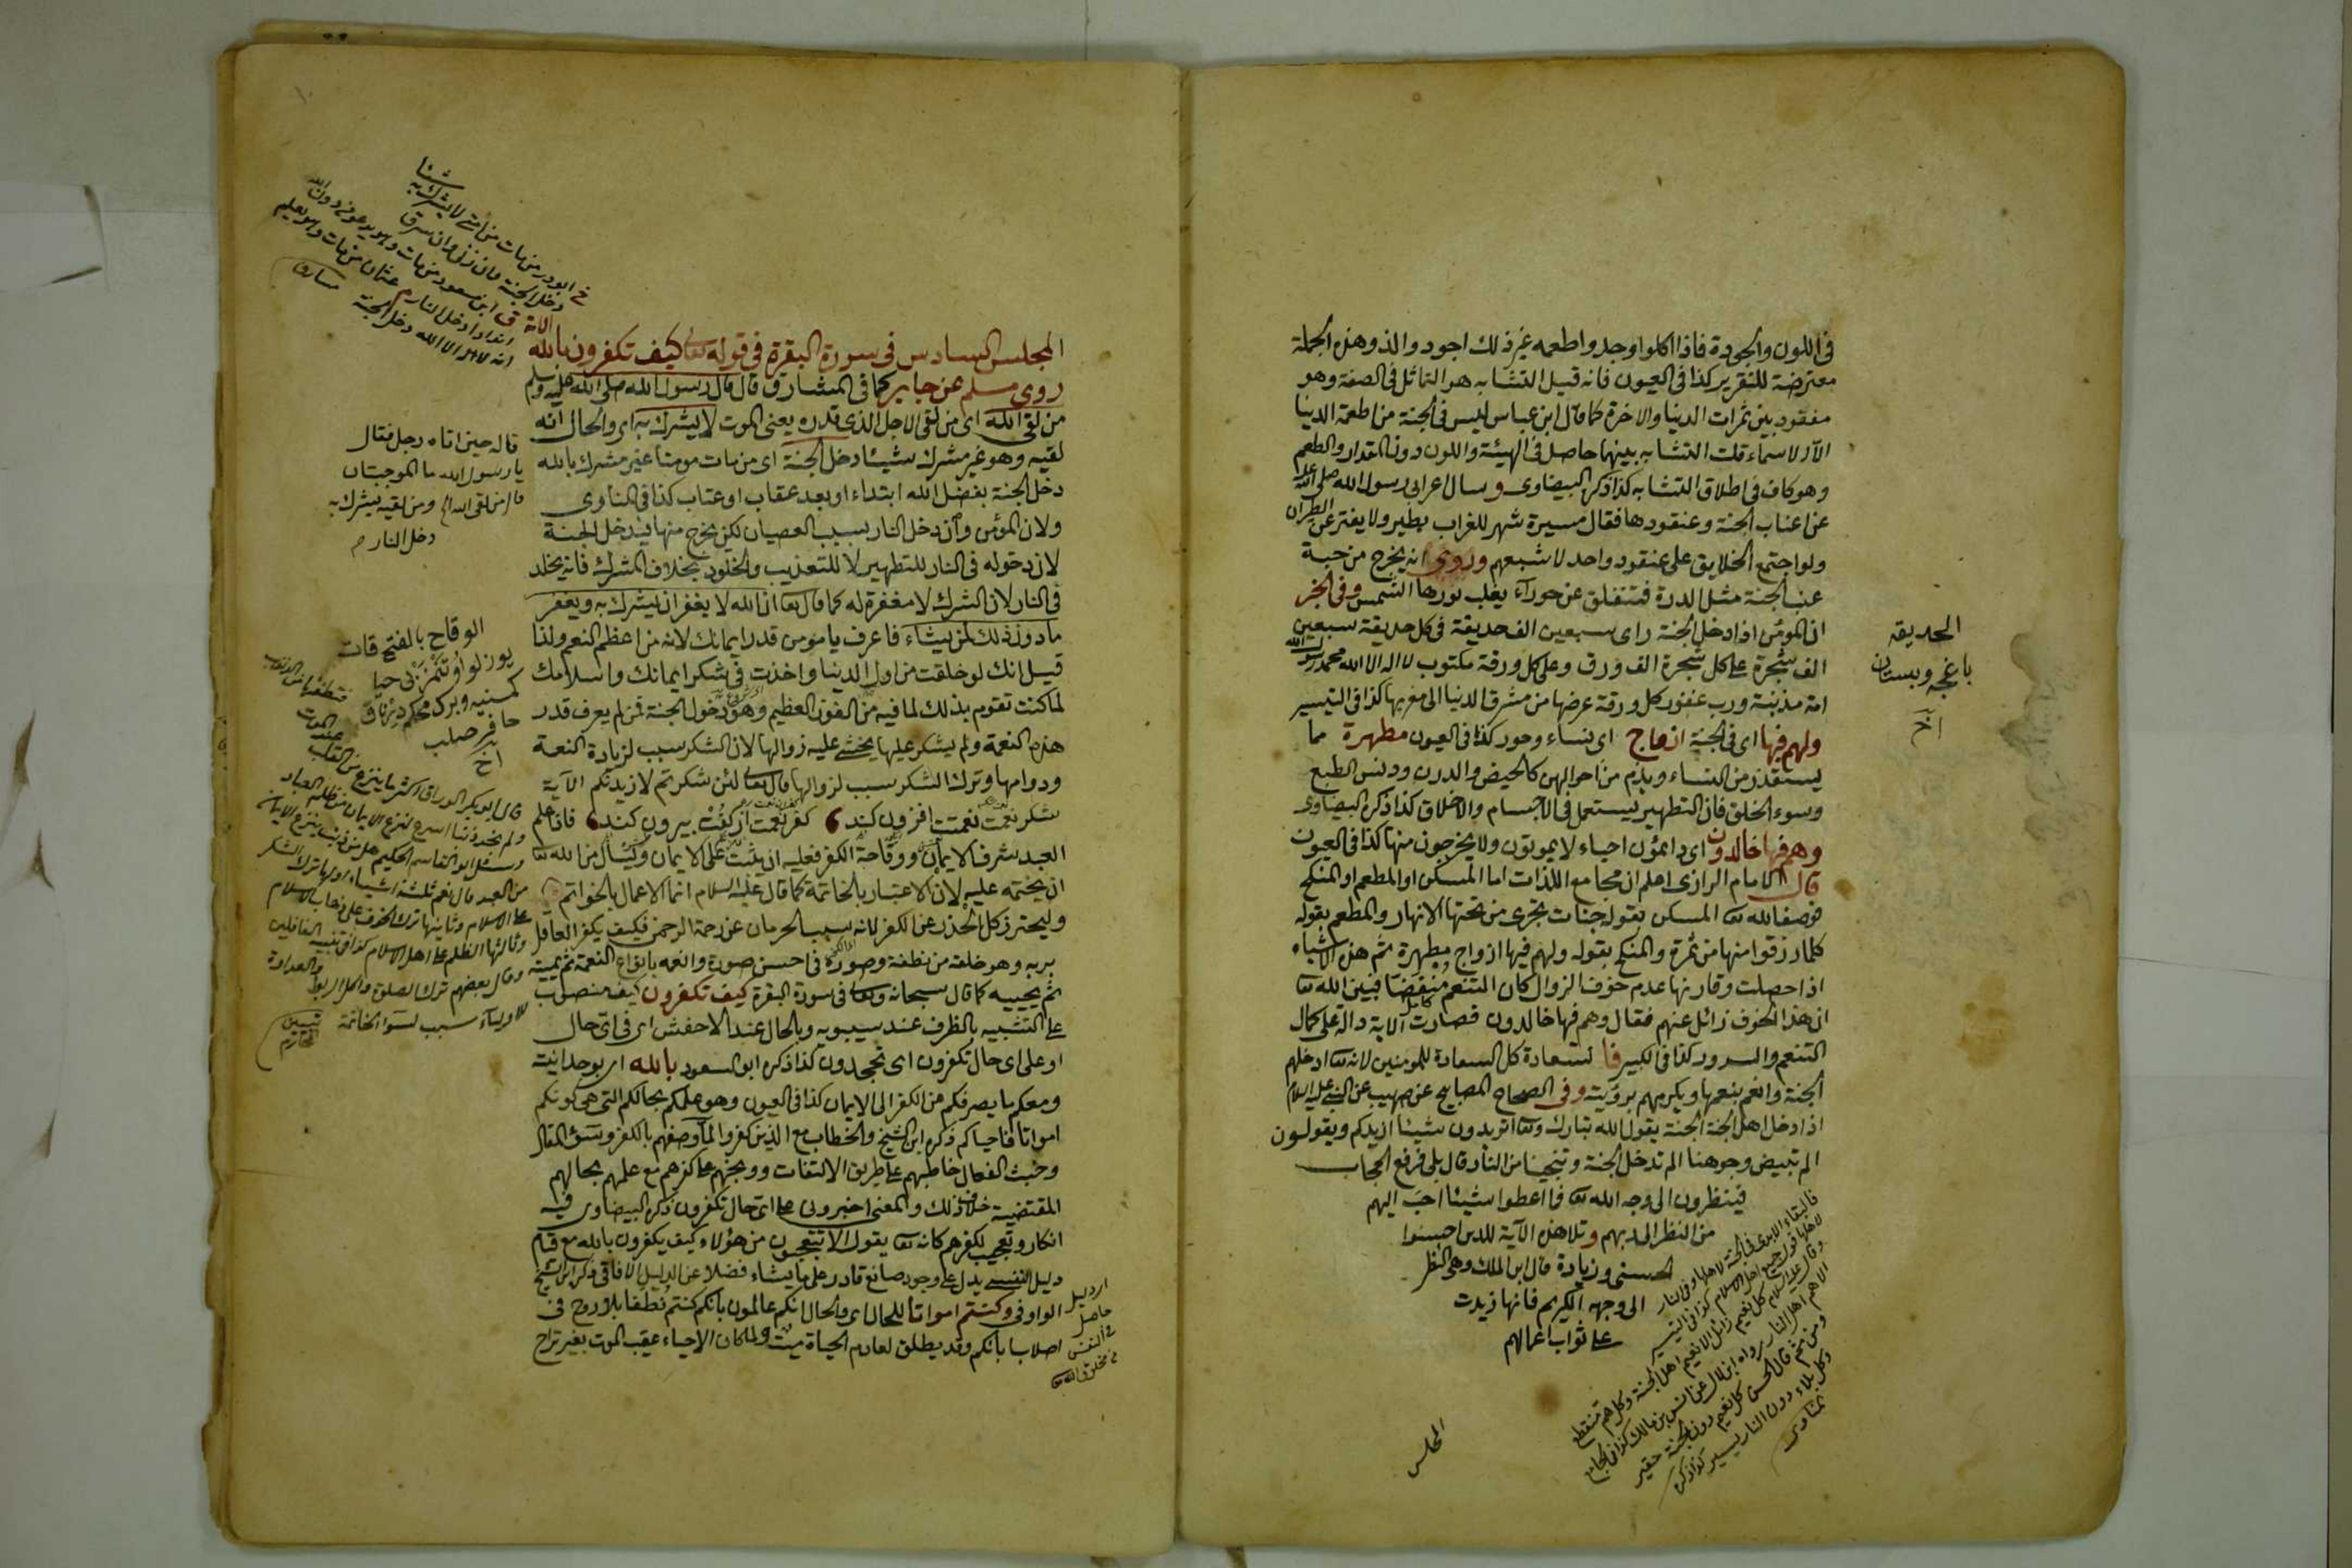 فى اللون والجودة فاذا اكلوا وجدوا طعمه غير ذلك اجود والذ وهذه الجملة
معترضة للتقرير كذا فى العيون فانه قيل التشابه هو التماثل فى الصفة وهو
مفقود بين ثمرات الدنيا والاخرة كما قال ابن عباس ليس فى الجنة من اطعمة الدنيا
الا الاسماء قلت التشابه بينهما حاصل فى الهيئة واللون دون المقدار والطعم
وهو كاف فى اطلاق التشابه كذا ذكره البيضاوى وسال اعرابى رسول الله صلى الله عليه
عن اعناب الجنة وعنقودها فقال مسيرة شهر للغراب يطير ولا يفتر عن الطيران
ولو اجتمع الخلايق على عنقود واحد لاشبعهم وروى انه يخرج من حبة
عنب الجنة مثل الدرة فتنفلق عن حورآء يغلب نورها الشمس وفى الخبر
ان المؤمن اذا دخل الجنة راى سبعين الف حديقة فى كل حديقة سبعين
الف شجرة على كل شجرة الف ورق وعلى كل ورقة مكتوب لا اله الا الله محمد رسول الله
امة مذنبة ورب غفور كل ورقة عرضها من مشرق الدنيا الى مغربها كذا فى التيسير
ولهم فيها اى فى الجنة ازواج اى نساء وحور كذا فى العيون مطهرة مما
يستقذر من النساء ويذم من احوالهن كالحيض والدرن ودنس الطبع
وسوء الخلق فان التطهير يستعمل فى الاجسام والاخلاق كذا ذكره البيضاوى
وهم فيها خالدون اى دائمون احياء لا يموتون ولا يخرجون منها كذا فى العيون
قال الامام الرازى اعلم ان مجامع اللذات اما المسكن او المطعم او المنكح
فوصف الله تعا المسكن بقوله جنات تجرى من تحتها الانهار والمطعم بقوله
كلما رزقوا منها من ثمرة والمنكح بقوله ولهم فيها ازواج مطهرة ثم هذه الاشياء
اذا حصلت وقارنها عدم خوف الزوال كان التنعم منقضا فبين الله تعا
ان هذا الخوف زائل عنهم فقال وهم فيها خالدون فصارت الاية دالة على كمال
التنعم والسرور كذا فى الكبير فا لسعادة كل السعادة للمومنين لانه تعا ادخلهم
الجنة وانعم بنعمها ويكرمهم برؤيته وفى الصحاح المصابيح عن صهيب عن النبى عليه السلام
اذا دخل اهل الجنة الجنة يقول الله تبارك وتعا اتريدون شيئا ازيدكم ويقولون
الم تبيض وجوهنا الم تدخل الجنة وتنجينا من النار قال بلى فرفع الحجاب
فينظرون الى وجه الله تعا فما اعطوا شيئا احب اليهم
من النظر الى ربهم وتلا هذه الآية للذين احسنوا
الحسنى وزيادة قال ابن الملك وهى النظر
الى وجهه الكريم فانها زيدت
على ثواب اعمالهم
الحديقة
باغچه وبستان
اخ
وقال عليه السلام كل نعيم زائل الا نعيم اهل الجنة وكل هم منقطع
الا هم اهل النار رواه ابن لال عن انس بن مالك كذا فى الجامع
ومن ثم قال الحسن كل نعيم دون الجنة حقير
وكل بلاء دون النار يسير كذا ذكره
مناوى
المجلس
المجلس السادس فى سورة البقرة فى قوله تعالى كيف تكفرون بالله
روى مسلم عن جابر كما فى المشارق قال قال رسول الله صلى الله عليه وسلم
من لقى الله اى من لقى الاجل الذى قدره يعنى الموت لا يشرك به اى والحال انه
لقيه وهو غير مشرك شيئا دخل الجنة اى من مات مومنا غير مشرك بالله
دخل الجنة بفضل الله ابتداء او بعد عقاب او عتاب كذا فى المناوى
ولان المؤمن وان دخل النار بسبب العصيان لكن يخرج منها فيدخل الجنة
لان دخوله فى النار للتطهير لا للتعذيب والخلود بخلاف المشرك فانه يخلد
فى النار لان الشرك لا مغفرة له كما قال تعا ان الله لا يغفر ان يشرك به ويغفر
ما دون ذلك لمن يشاء فاعرف يا مومن قدر ايمانك لانه من اعظم النعم ولذا
قيل انك لو خلقت من اول الدنيا واخذت فى شكر ايمانك واسلامك
لما كنت تقوم بذلك لما فيه من الفوز العظيم وهو دخول الجنة فمن لم يعرف قدر
هذه النعمة ولم يشكر عليها يخشى عليه زوالها لان الشكر سبب لزيادة النعمة
ودوامها وترك الشكر سبب لزوالها قال تعالى لئن شكرتم لازيدنكم الآية
شكر نعمت نعمتت افزون كند كفر نعمت از كفت بيرون كند فاذا علم
العبد شرف الايمان ووقاحة الكفر فعليه ان يثبت على الايمان ويسأل من الله تعا
ان يختمه عليه لان الاعتبار بالخاتمة كما قال عليه السلام انما الاعمال بالخواتم
وليحترز كل الحذر عن الكفر لانه سبب الحرمان عن رحمة الرحمن فكيف يكفر العاقل
بربه وهو خلقه من نطفة وصوره فى احسن صورة وانعمه بانواع النعمة ثم يميته
ثم يحييه كما قال سبحانه وتعالى فى سورة البقرة كيف تكفرون كيف منصوب
على التشبيه بالظرف عند سيبويه وبالحال عند الاخفش اى فى اى حال
او على اى حال تكفرون اى تجحدون كذا ذكره ابو السعود بالله اى بوحدانيته
ومعكم ما يصرفكم من الكفر الى الايمان كذا فى العيون وهو علمكم بحالكم التى هى كونكم
امواتا فاحياكم ذكره ابن الشيخ والخطاب مع الذين كفروا لما وصفهم بالكفر وسوء المقال
وخبث الفعال خاطبهم على طريق الالتفات ووبخهم على كفرهم مع علمهم بحالهم
المقتضية خلاف ذلك والمعنى اخبرونى على اى حال تكفرون ذكره البيضاوى فيه
انكار وتعجيب لكفرهم كانه تعا يقول الا تتعجبون من هؤلاء كيف يكفرون بالله مع قيام
دليل انفسى يدل على وجود صانع قادر على ما يشاء فضلا عن الدليل الافاقى ذكره ابن الشيخ
الواو فى وكنتم امواتا للحال اى والحال انكم عالمون بانكم كنتم نطفا بلا روح فى
اصلاب ابائكم وقد يطلق لعادم الحياة ميت ولما كان الاحياء عقيب الموت بغير تراخ
خ ابو ذر من مات من امتى لا يشرك به شيئا
دخل الجنة وان زنى وان سرق
ق ابن مسعود من مات وهو يدعو من دون الله
اندادا دخل النار م عثمان من مات وهو يعلم
انه لا اله الا الله دخل الجنة مشارق
قاله حين اتاه رجل فقال
يا رسول الله ما الموجبتان
قال من لقى الله الخ ومن لقيه يشرك به
دخل النار م
الوقاح بالفتح قات
حافر صلب
اخ
قال ابو بكر الوراق اكثر ما ينزع من القلب
وسئل ابو القاسم الحكيم هل من ذنب ينزع الايمان
من العبد قال نعم ثلثة اشياء اولها ترك الشكر
على الاسلام وثانيها ترك الخوف على ذهاب الاسلام
وثالثها الظلم على اهل الاسلام كذا فى تنبيه الغافلين